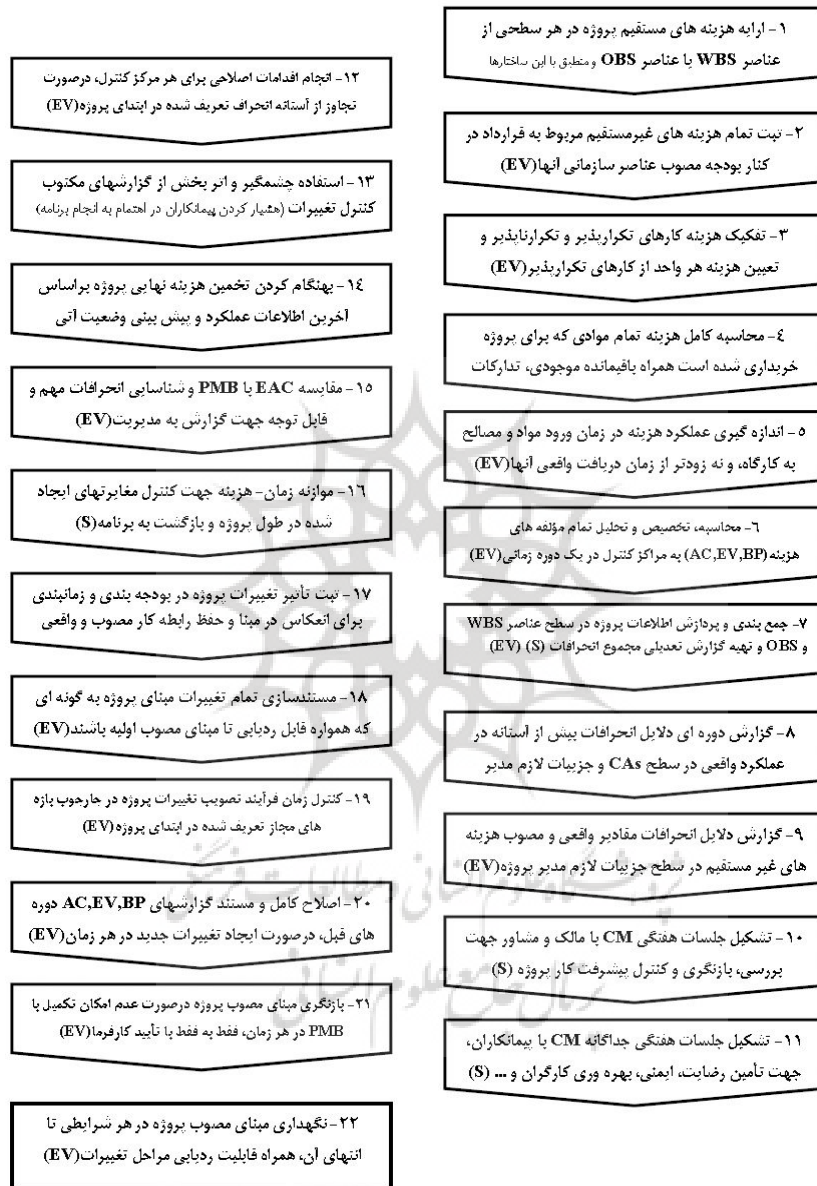 ۱- ارایه هزینه های مستقیم پروژه در هر سطحی از
عناصر WBS با عناصر OBS و منطبق با این ساختارها
۲- ثبت تمام هزینه های غیرمستقیم مربوط به قرارداد در
کنار بودجه مصوب عناصر سازمانی آنها(EV)
۳- تفکیک هزینه کارهای تکرارپذیر و تکرارناپذیر و
تعیین هزینه هر واحد از کارهای تکرارپذیر(EV)
٤- محاسبه کامل هزینه تمام موادی که برای پروژه
خریداری شده است همراه باقیمانده موجودی، تدارکات
٥- اندازه گیری عملکرد هزینه در زمان ورود مواد و مصالح
به کارگاه، و نه زودتر از زمان دریافت واقعی آنها(EV)
٦- محاسبه، تخصیص و تحلیل تمام مؤلفه های
هزینه(AC,EV,BP) به مراکز کنترل در یک دوره زمانی(EV)
۷- جمع بندی و پردازش اطلاعات پروژه در سطح عناصر WBS
و OBS و تهیه گزارش تعدیلی مجموع انحرافات (S) (EV)
۸- گزارش دوره ای دلایل انحرافات بیش از آستانه در
عملکرد واقعی در سطح CAs و جزییات لازم مدیر
۹- گزارش دلایل انحرافات مقادیر واقعی و مصوب هزینه
های غیر مستقیم در سطح جزییات لازم مدیر پروژه(EV)
۱۰- تشکیل جلسات هفتگی CM با مالک و مشاور جهت
بررسی، بازنگری و کنترل پیشرفت کار پروژه (S)
۱۱- تشکیل جلسات هفتگی جداگانه CM با پیمانکاران،
جهت تأمین رضایت، ایمنی، بهره وری کارگران و ... (S)
۱۲- انجام اقدامات اصلاحی برای هر مرکز کنترل، درصورت
تجاوز از آستانه انحراف تعریف شده در ابتدای پروژه(EV)
۱۳- استفاده چشمگیر و اثر بخش از گزارشهای مکتوب
کنترل تغییرات (هشیار کردن پیمانکاران در اهتمام به انجام برنامه)
۱٤- بهنگام کردن تخمین هزینه نهایی پروژه براساس
آخرین اطلاعات عملکرد و پیش بینی وضعیت آتی
۱٥- مقایسه EAC با PMB و شناسایی انحرافات مهم و
قابل توجه جهت گزارش به مدیریت(EV)
۱٦- موازنه زمان- هزینه جهت کنترل مغایرتهای ایجاد
شده در طول پروژه و بازگشت به برنامه(S)
۱۷- ثبت تأثیر تغییرات پروژه در بودجه بندی و زمانبندی
برای انعکاس در مبنا و حفظ رابطه کار مصوب و واقعی
۱۸- مستندسازی تمام تغییرات مبنای پروژه به گونه ای
که همواره قابل ردیابی تا مبنای مصوب اولیه باشند(EV)
۱۹- کنترل زمان فرآیند تصویب تغییرات پروژه در چارچوب بازه
های مجاز تعریف شده در ابتدای پروژه(EV)
۲۰- اصلاح کامل و مستند گزارشهای AC,EV,BP دوره
های قبل، درصورت ایجاد تغییرات جدید در هر زمان(EV)
۲۱- بازنگری مبنای مصوب پروژه درصورت عدم امکان تکمیل با
PMB در هر زمان، فقط به فقط با تأیید کارفرما(EV)
۲۲- نگهداری مبنای مصوب پروژه در هر شرایطی تا
انتهای آن، همراه قابلیت ردیابی مراحل تغییرات(EV)
پژوهشگاه علوم انسانی و مطالعات فرهنگی
پرتال جامع علوم انسانی